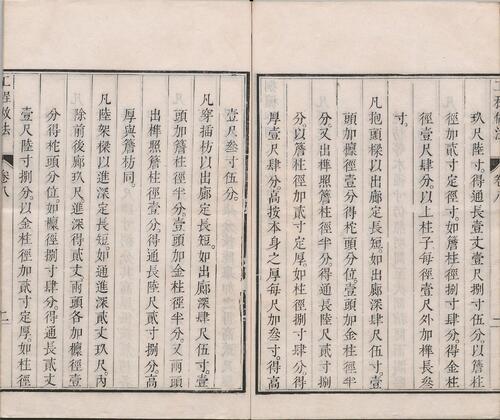 玖尺陸寸。得通長壹丈壹尺玖寸伍分。以簷柱
徑加貳寸定徑寸。如簷柱徑捌寸肆分。得金柱
徑壹尺肆分。以上柱子每徑壹尺外加榫長叁
寸。
凡抱頭樑以出廊定長短。如出廊深肆尺伍寸。壹
頭加檁徑壹分得柁頭分位。壹頭加金柱徑半
分又出榫照簷柱徑半分得通長陸尺貳寸捌
分以簷柱徑加貳寸定厚。如柱徑捌寸肆分。得
厚壹尺肆分高按本身之厚每尺加叁寸。得高
壹尺叁寸伍分。
凡穿插枋以出廊定長短。如出廊深肆尺伍寸。壹
頭加簷柱徑半分。壹頭加金柱徑半分。又兩頭
出榫照簷柱徑壹分。得通長陸尺貳寸捌分。高
厚與簷枋同。
凡陸架樑以進深定長短。如通進深貳丈玖尺。內
除前後廊玖尺進深得貳丈兩頭各加檁徑壹
分得柁頭分位。如檁徑捌寸肆分。得通長貳丈
壹尺陸寸捌分。以金柱徑加貳寸定厚。如柱徑
工程做法 卷八